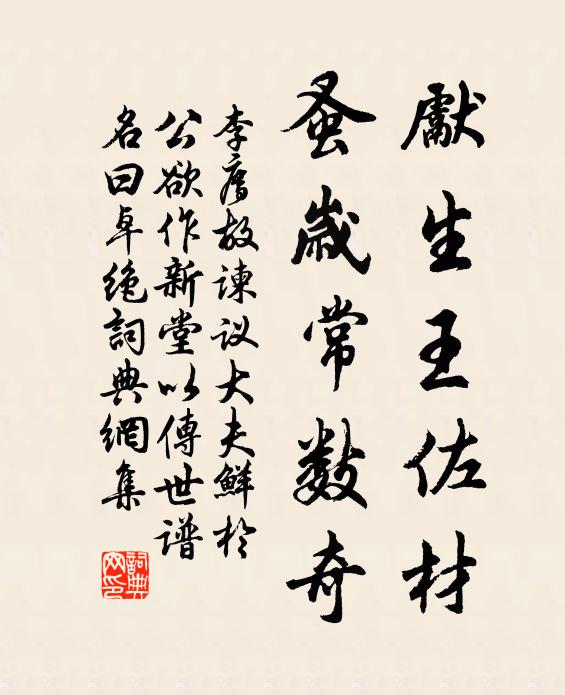 獻生王佐材
蚤歲常數奇
李廌故諫议大夫鮮於
公欲作新堂以傳世谱
名曰卓绝詞典網集
詞典
网印